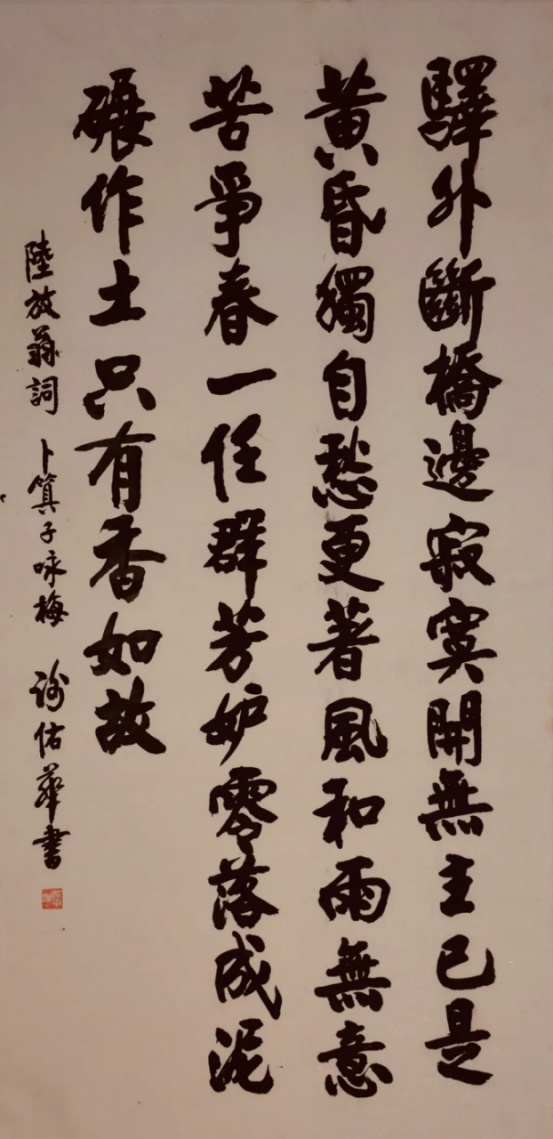 驛外斷橋邊寂寞開無主已是
黃昏獨自愁更著風和雨無意
苦爭春一任群芳妒零落成泥
碾作土只有香如故
陸放翁詞 卜算子咏梅 謝佑華書